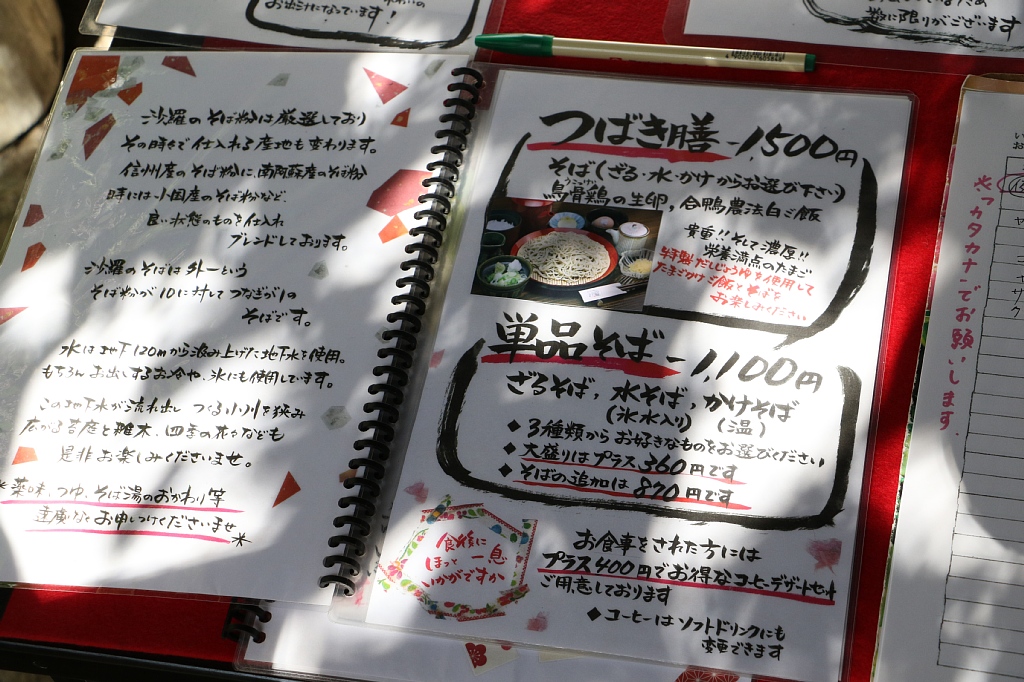 お出かけになっています!
特に限りがございます
沙羅のそば粉は厳選しており
その時々で仕入れる産地も変わります。
信州産のそば粉に、南阿蘇産のそば粉
時には小国産のそば粉など、
良い状態のものを仕入れ
ブレンドしております。
沙羅のそばは外一という
そば粉が10に対してつなぎが1の
そばです。
水は地下120mから汲み上げた地下水を使用。
もちろんお出しするお冷や、氷にも使用しています。
この地下水が流れ出しつくる小川を挟み
広がる苔庭と雑木、四季の花々なども
是非お楽しみくださいませ。
*薬味、つゆ、そば湯のおかわり等
遠慮なくお申しつけくださいませ*
つばき膳-1,500円
そば(ざる・水・かけからお選び下さい)
うこっけい
烏骨鶏の生卵、合鴨農法白ご飯
貴重!!そして濃厚!!
栄養満点のたまご
特製だしじょうゆを使用して
たまごかけご飯とそばを
お楽しみください
単品そば-1,100円
ざるそば,水そば,かけそば
(氷水入り) (温)
◆3種類からお好きなものをお選びください
◆大盛りはプラス360円です
◆そばの追加は870円です
食後に
ほっと一息
いかがですか
お食事をされた方には
プラス400円でお得なコーヒーデザートセット
ご用意しております
◆コーヒーはソフトドリンクにも
変更できます
※カタカナでお願いします.